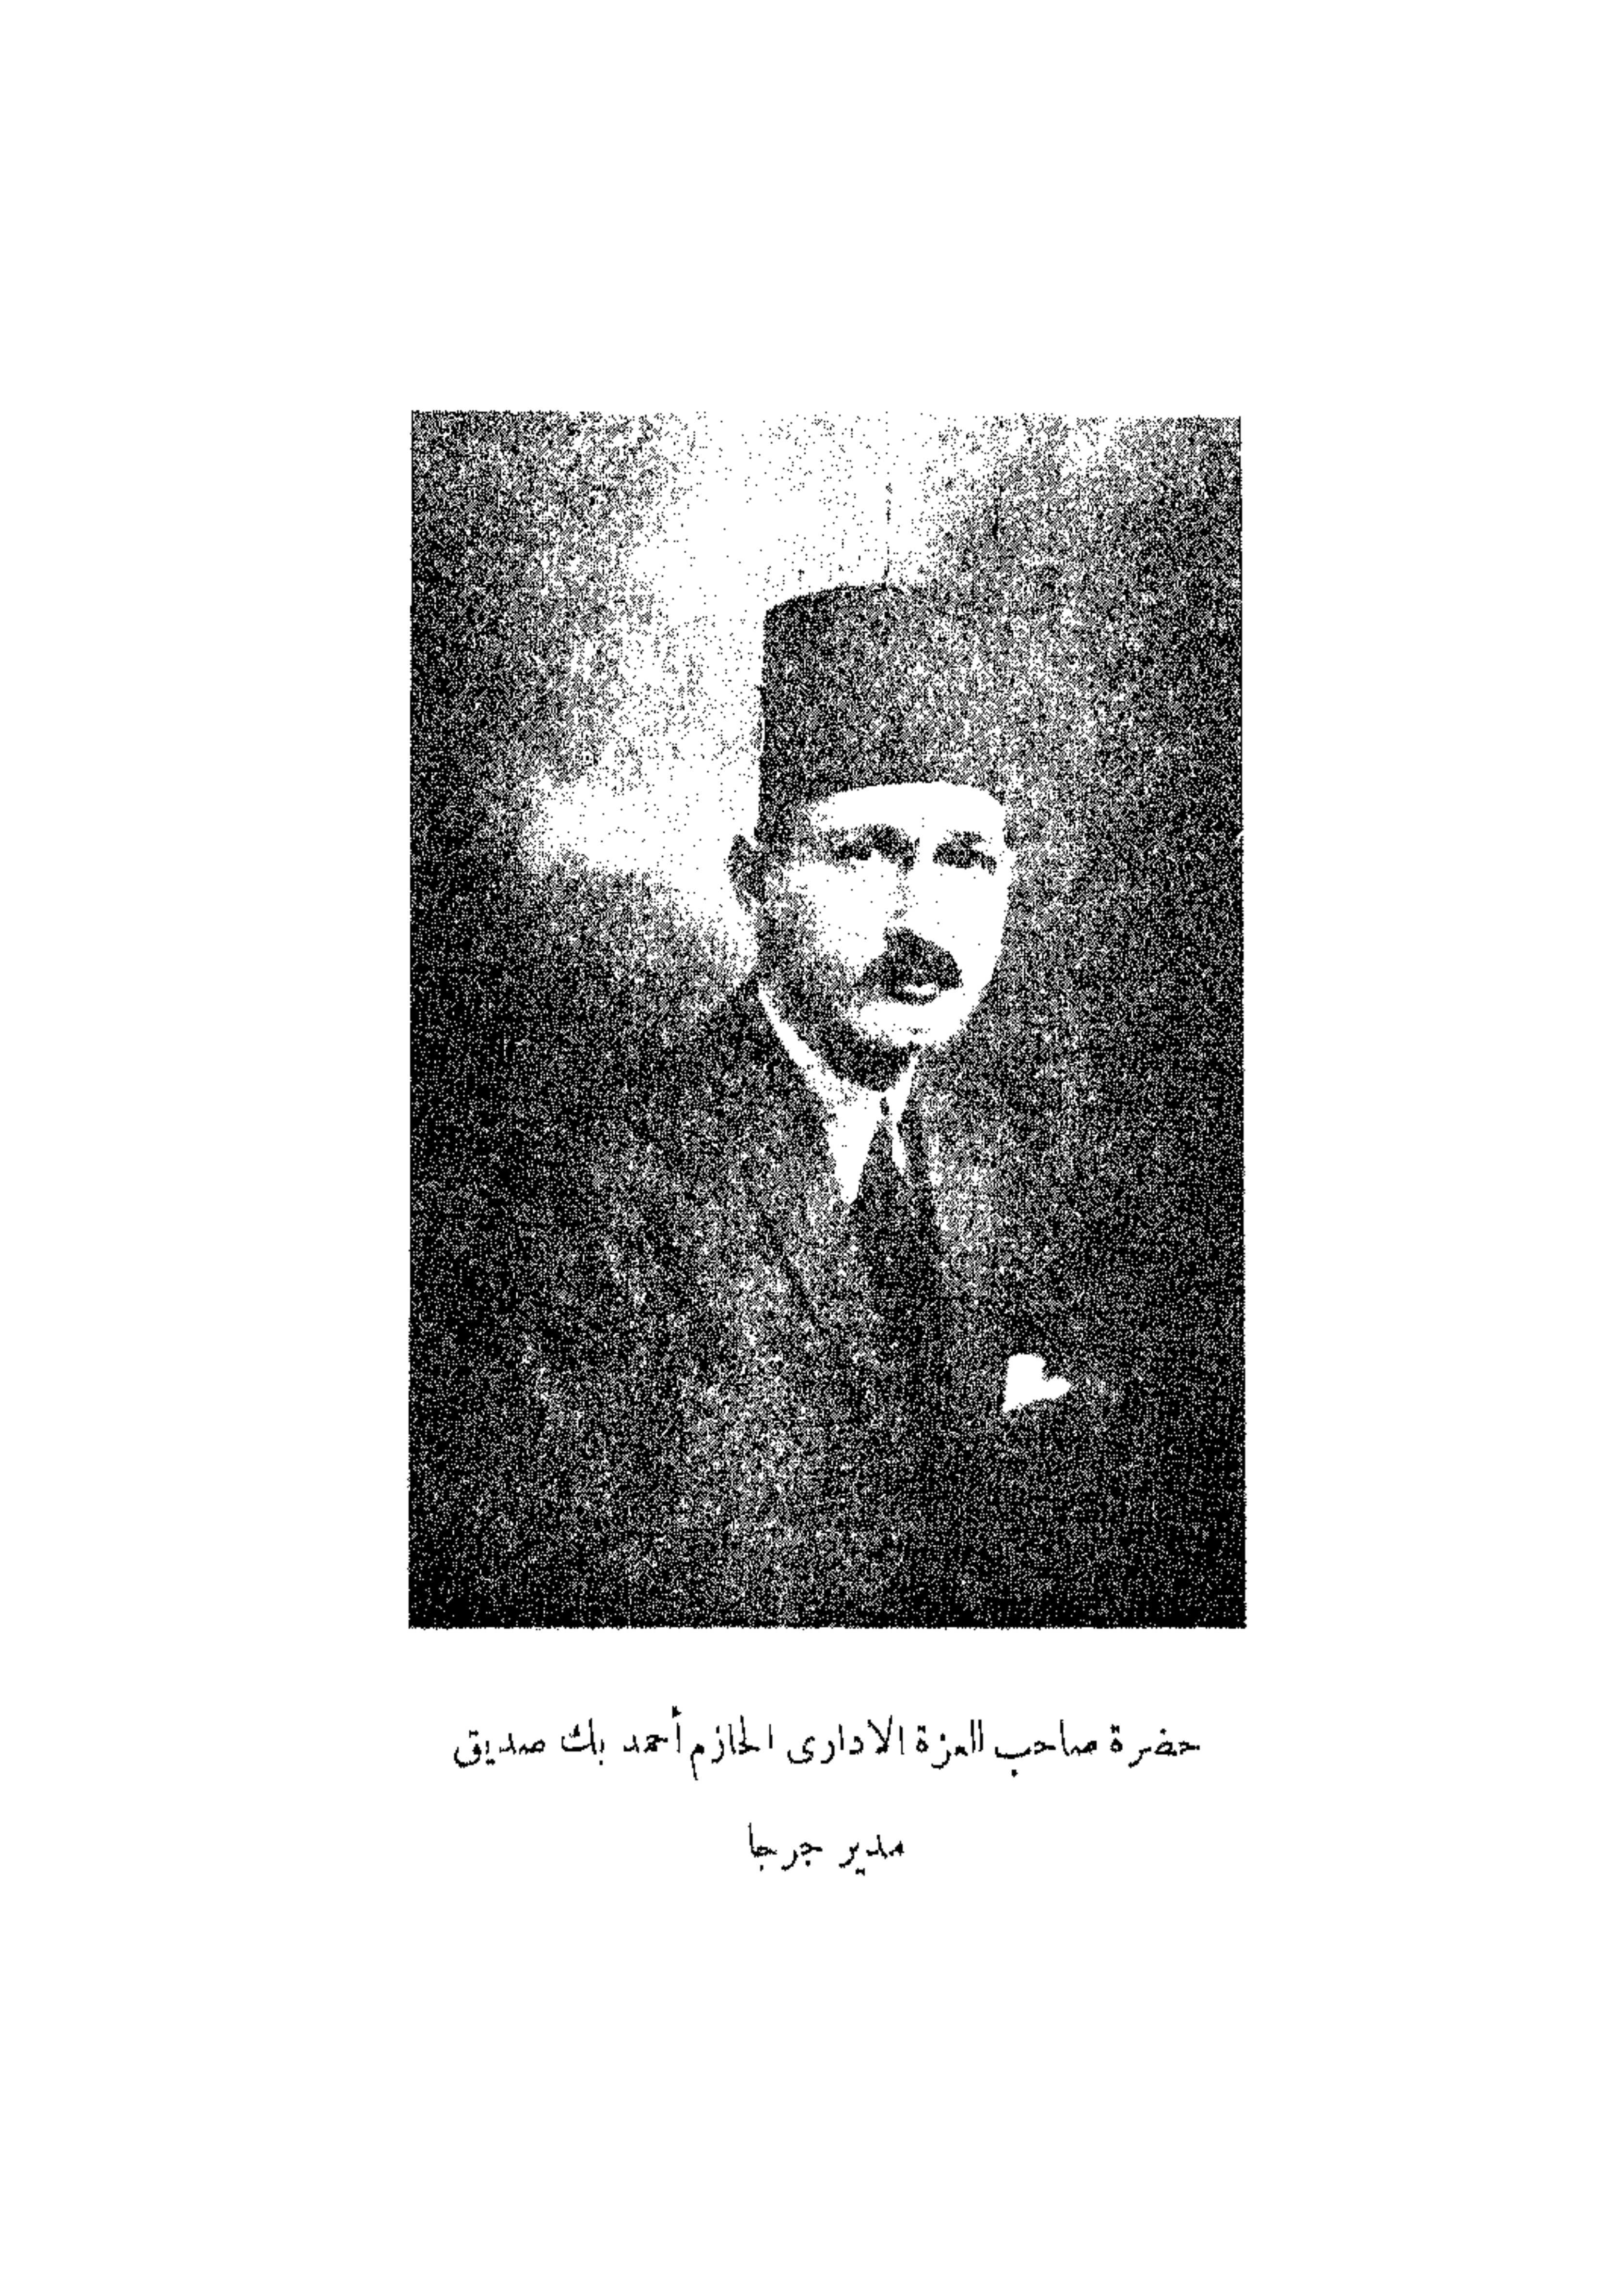 حضرة صاحب العزة الادارى الحازم أحمد بك صديق
مدير جرجا